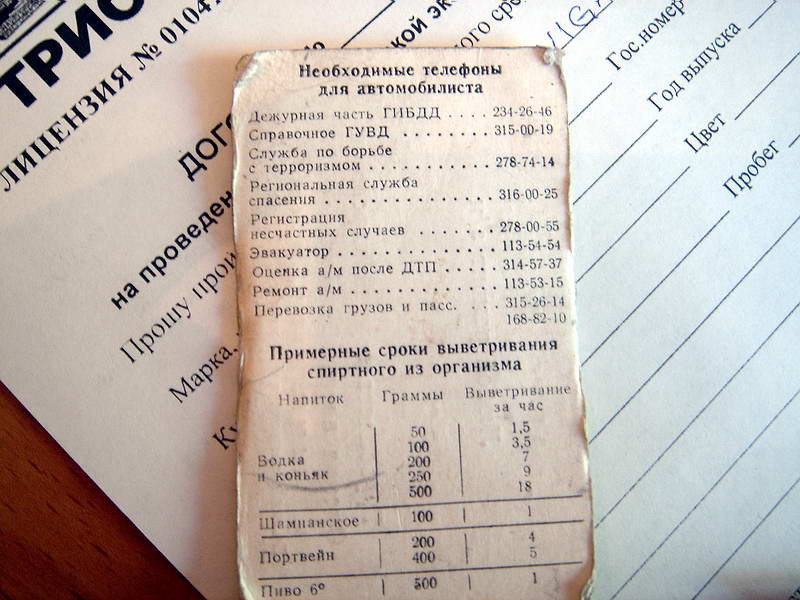 ТРИО
ЛИЦЕНЗИЯ № 0104
ДОГО
на проведен
Прошу прой
Марка,
Гос.номер
Год выпуска
Цвет
Пробег
Необходимые телефоны
для автомобилиста
Дежурная часть ГИБДД .... 234-26-46
Справочное ГУВД ........ 315-00-19
Служба по борьбе
с терроризмом ........... 278-74-14
Региональная служба
спасения ................ 316-00-25
Регистрация
несчастных случаев ....... 278-00-55
Эвакуатор .............. 113-54-54
Оценка а/м после ДТП ..... 314-57-37
Ремонт а/м ............. 113-53-15
Перевозка грузов и пасс. ... 315-26-14
168-82-10
Примерные сроки выветривания
спиртного из организма
Напиток Граммы Выветривание
за час
50 1,5
100 3,5
Водка 200 7
и коньяк 250 9
500 18
Шампанское 100 1
200 4
Портвейн 400 5
Пиво 6° 500 1